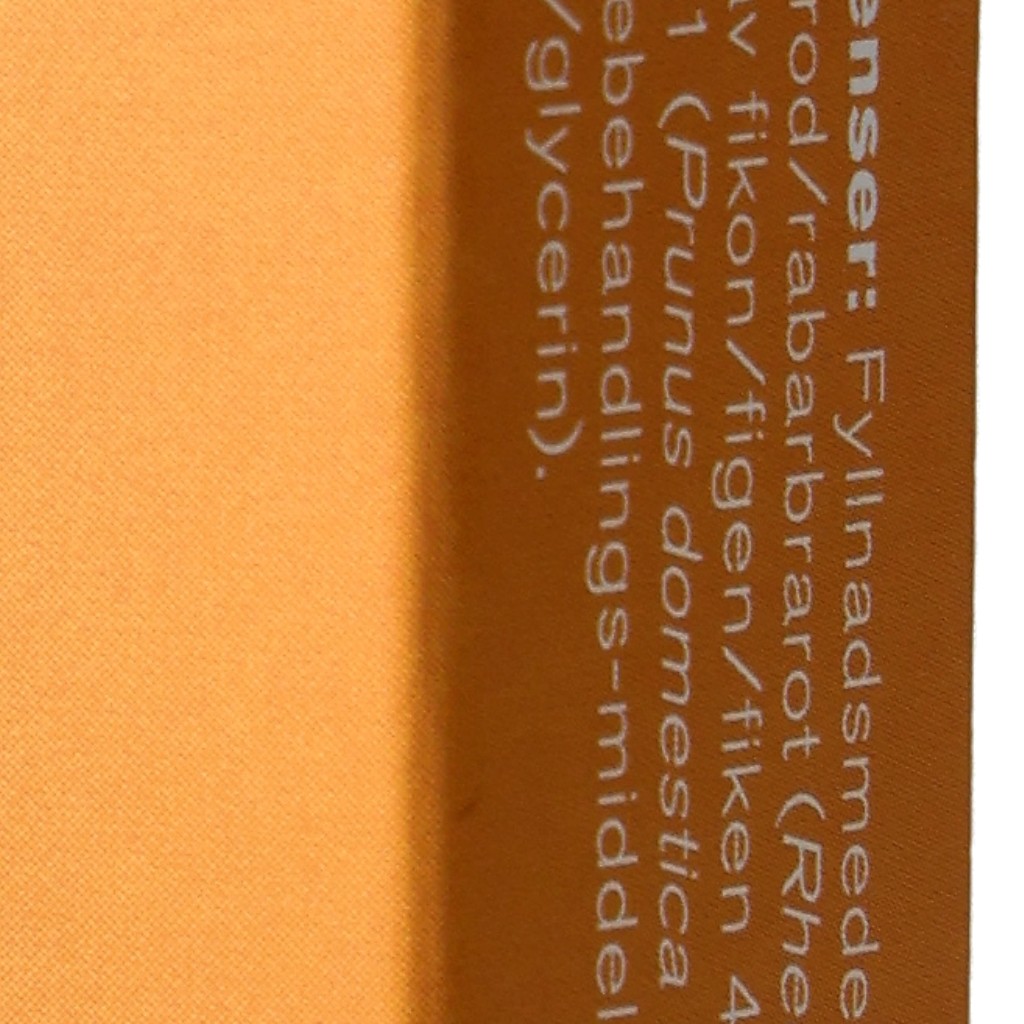 enser: Fyllnadsmede
rod/rabarbrarot (Rhe
av fikon/figen/fiken 4
1 (Prunus domestica
ebehandlings-middel
/glycerin).